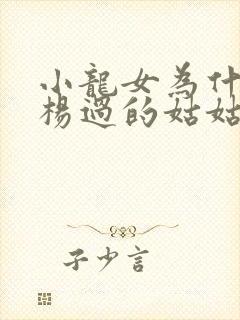 小龍女為什
楊過的姑姑
子少言